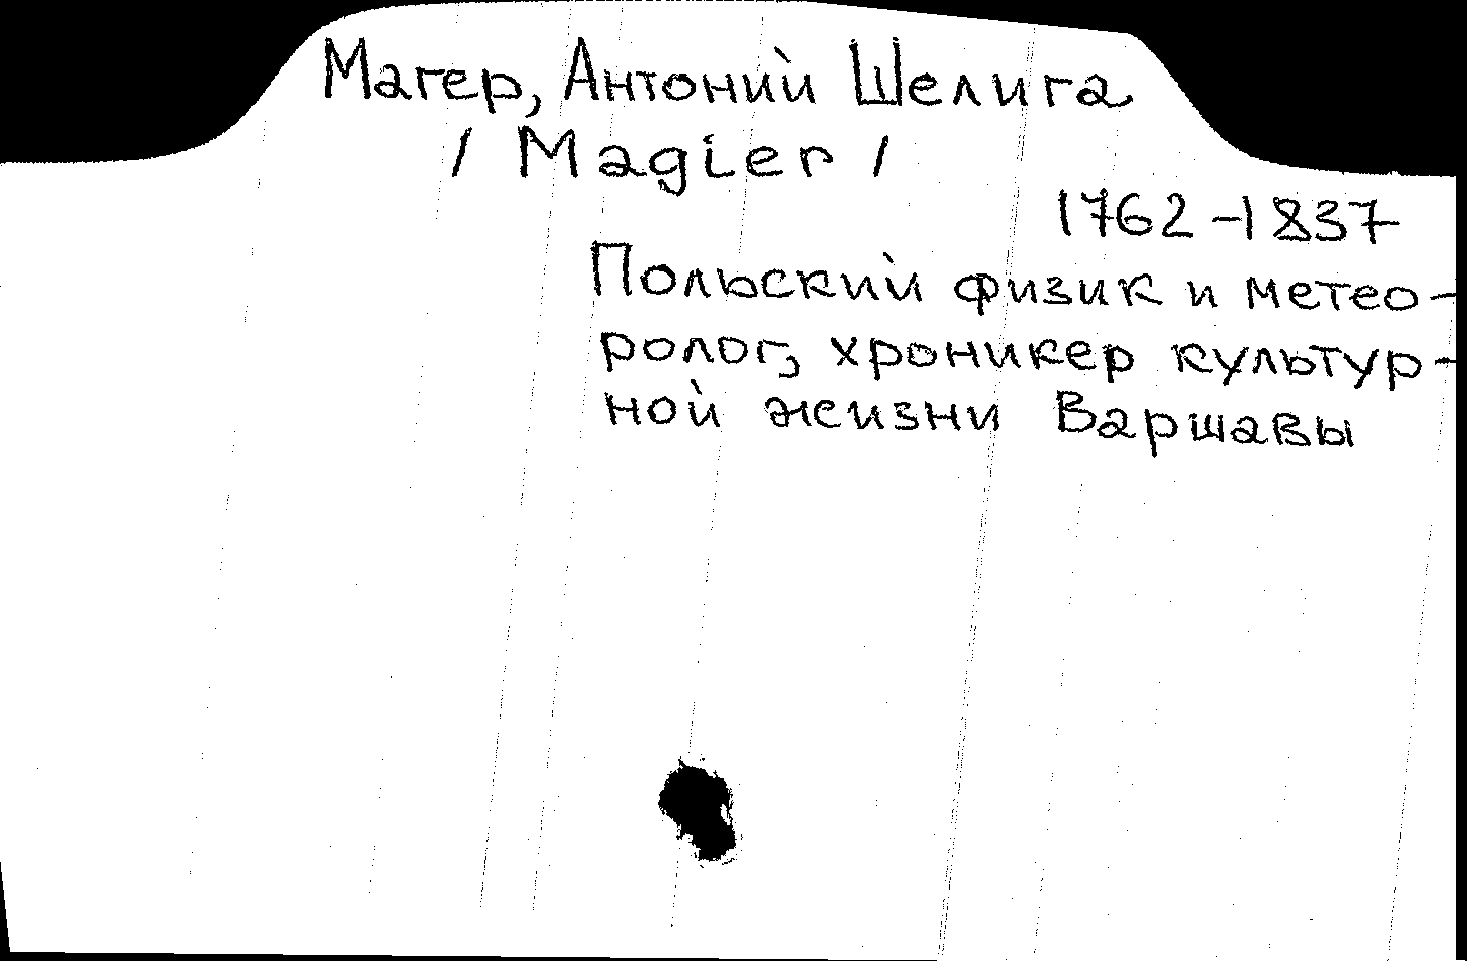 Магер, Антоний Шелига
/ Magier /
1762-1837
Польский физик и метео-
ролог, хроникер культур-
ной жизни Варшавы